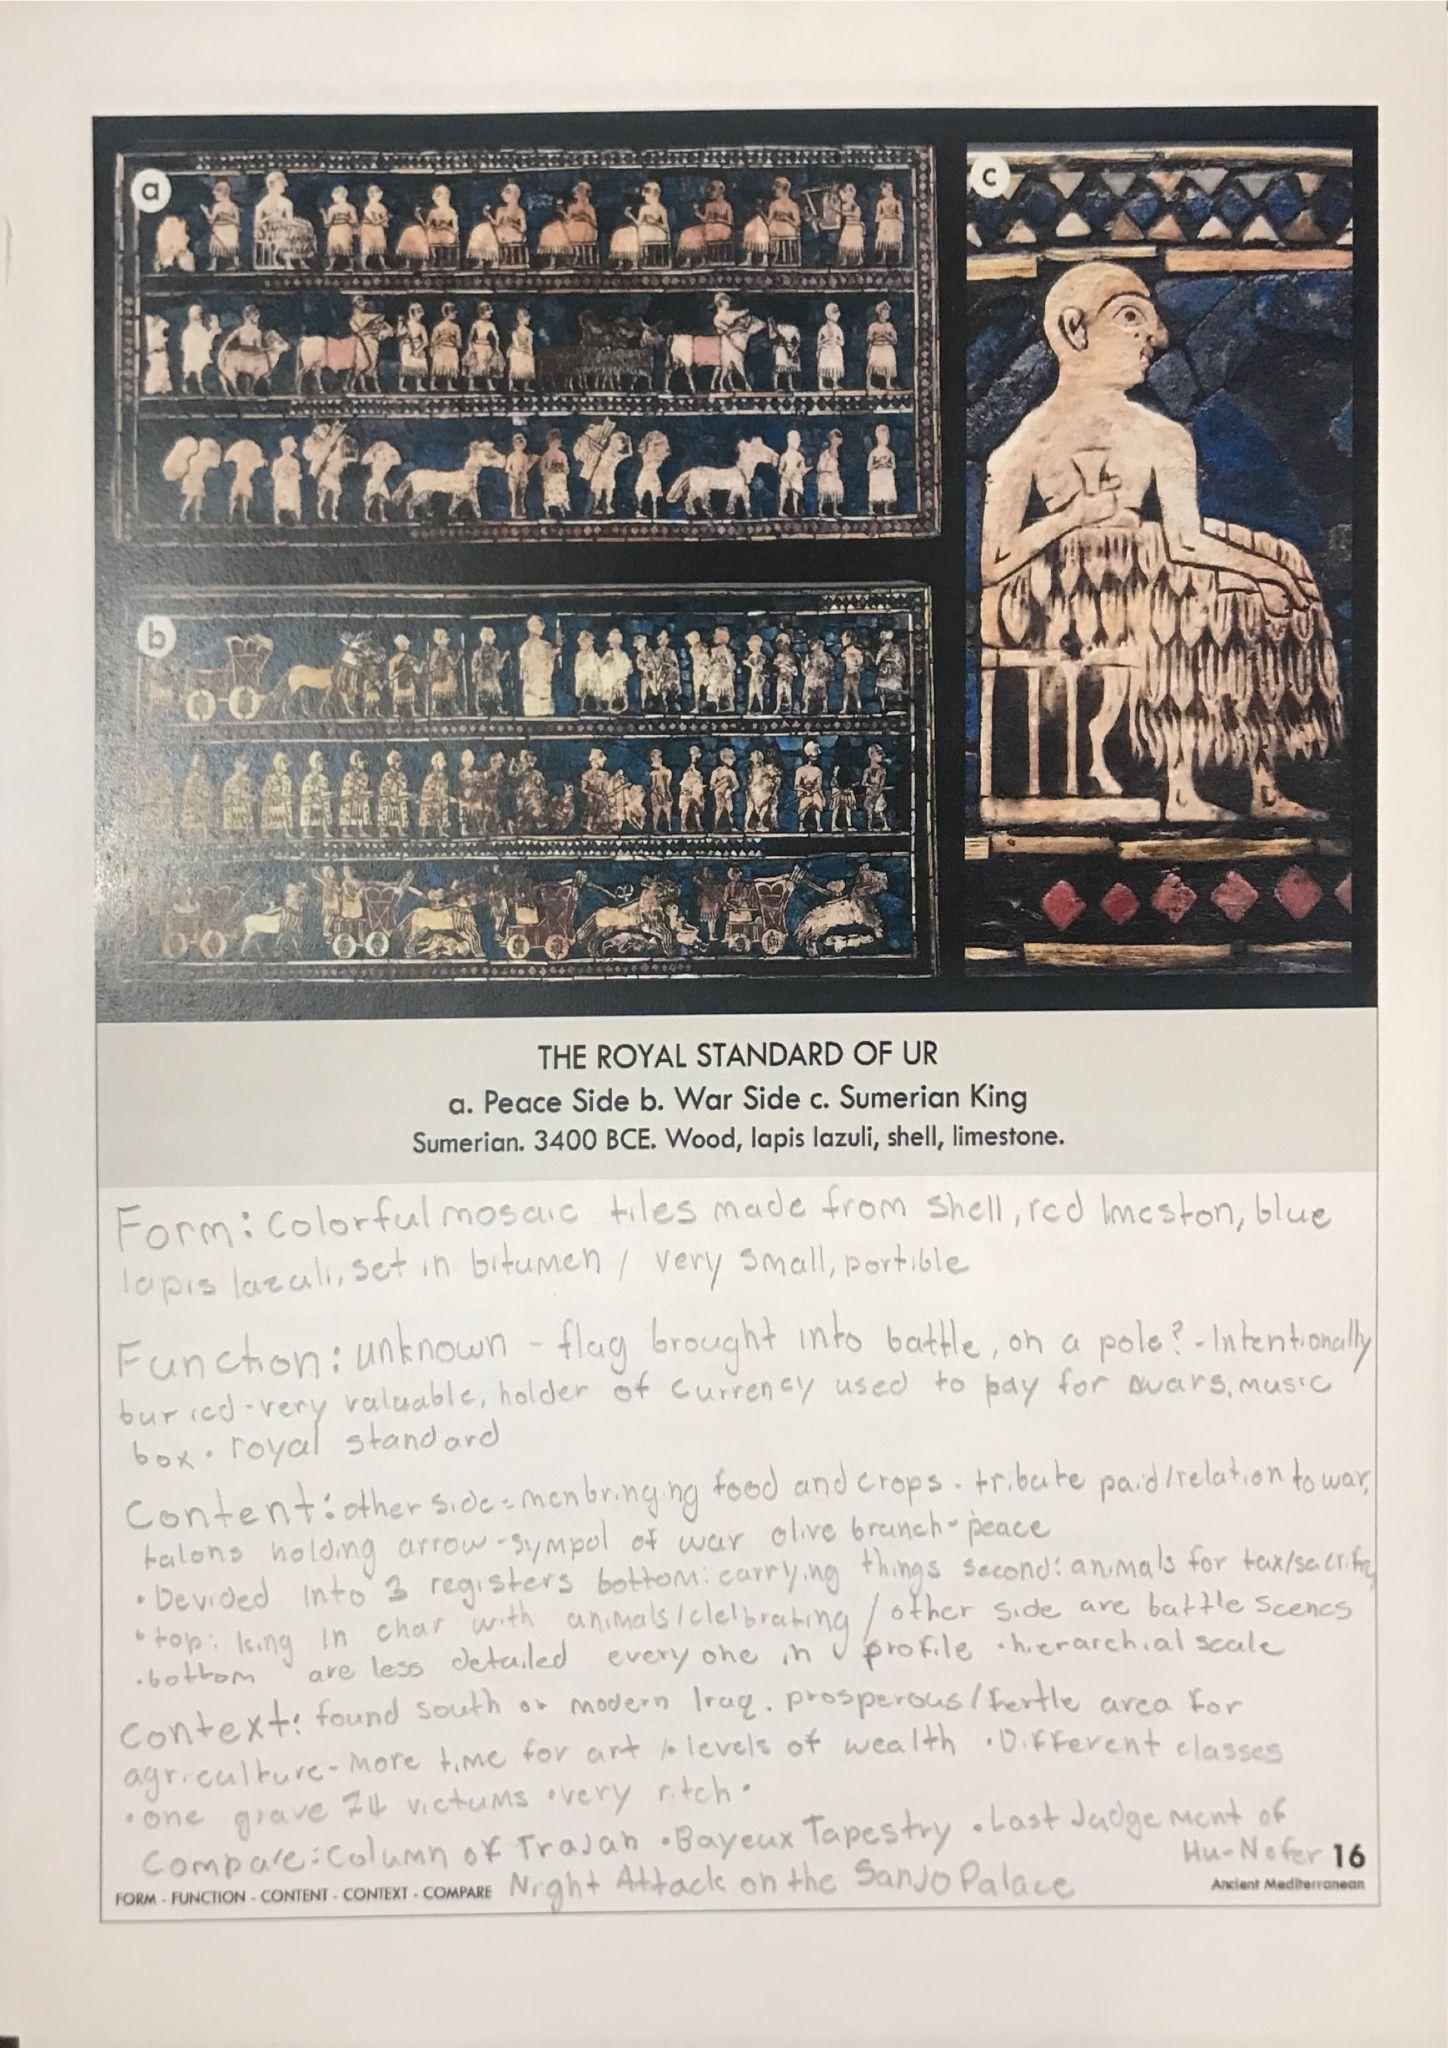 a
c
b
THE ROYAL STANDARD OF UR
a. Peace Side b. War Side c. Sumerian King
Sumerian. 3400 BCE. Wood, lapis lazuli, shell, limestone.
Form: Colorful mosaic tiles made from shell, red lmeston, blue
lapis lazuli, set in bitumen / very small, portible
Function: unknown - flag brought into battle, on a pole? - Intentionally
buried - very valuable, holder of currency used to pay for wars, music
box. royal standard
Content: other side = men bringing food and crops. tribute paid/relation to war,
talons holding arrow - sympol of war olive branch - peace
• Devided into 3 registers bottom: carrying things second: animals for tax/sacrifice
• top: king in char with animals/clelbrating / other side are battle scenes
• bottom are less detailed everyone in profile • hierarchial scale
Context: found south or modern Iraq. prosperous/fertle area for
agriculture - more time for art levels of wealth • Different classes
• one grave 74 victums • very ritch •
Compare: Column of Trajan • Bayeux Tapestry • Last Judgement of
Hu-Nefer 16
FORM - FUNCTION - CONTENT - CONTEXT - COMPARE Night Attack on the Sanjo Palace
Ancient Mediterranean